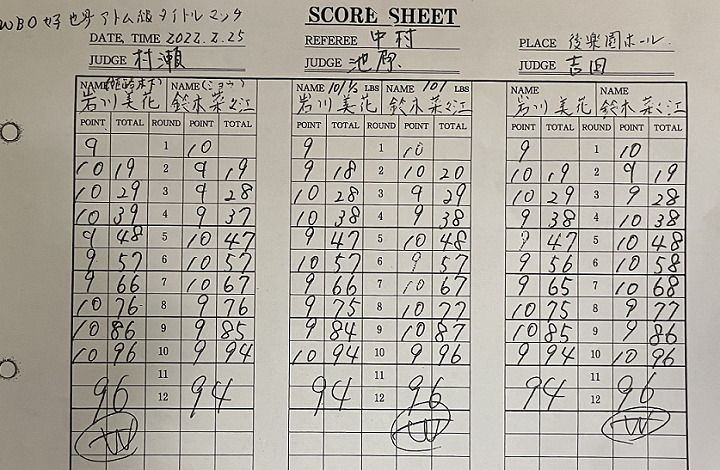 WBO女子世界アトム級タイトルマッチ
SCORE SHEET
DATE, TIME 2022.7.25
REFEREE 中村
PLACE 後楽園ホール
JUDGE 村瀬
JUDGE 池原
JUDGE 吉田
NAME (姫路木下) NAME (ショウ)
岩川美花 鈴木菜々江
POINT TOTAL ROUND POINT TOTAL
9 1 10
10 19 2 9 19
10 29 3 9 28
10 39 4 9 37
9 48 5 10 47
9 57 6 10 57
9 66 7 10 67
10 76 8 9 76
10 86 9 9 85
10 96 10 9 94
11
12
96 94
W
NAME 101½ LBS NAME 101 LBS
岩川美花 鈴木菜々江
POINT TOTAL ROUND POINT TOTAL
9 1 10
9 18 2 10 20
10 28 3 9 29
10 38 4 9 38
9 47 5 10 48
10 57 6 9 57
9 66 7 10 67
9 75 8 10 77
9 84 9 10 87
10 94 10 9 96
11
12
94 96
W
NAME NAME
岩川美花 鈴木菜々江
POINT TOTAL ROUND POINT TOTAL
9 1 10
10 19 2 9 19
10 29 3 9 28
9 38 4 10 38
9 47 5 10 48
9 56 6 10 58
9 65 7 10 68
10 75 8 9 77
10 85 9 9 86
9 94 10 10 96
11
12
94 96
W